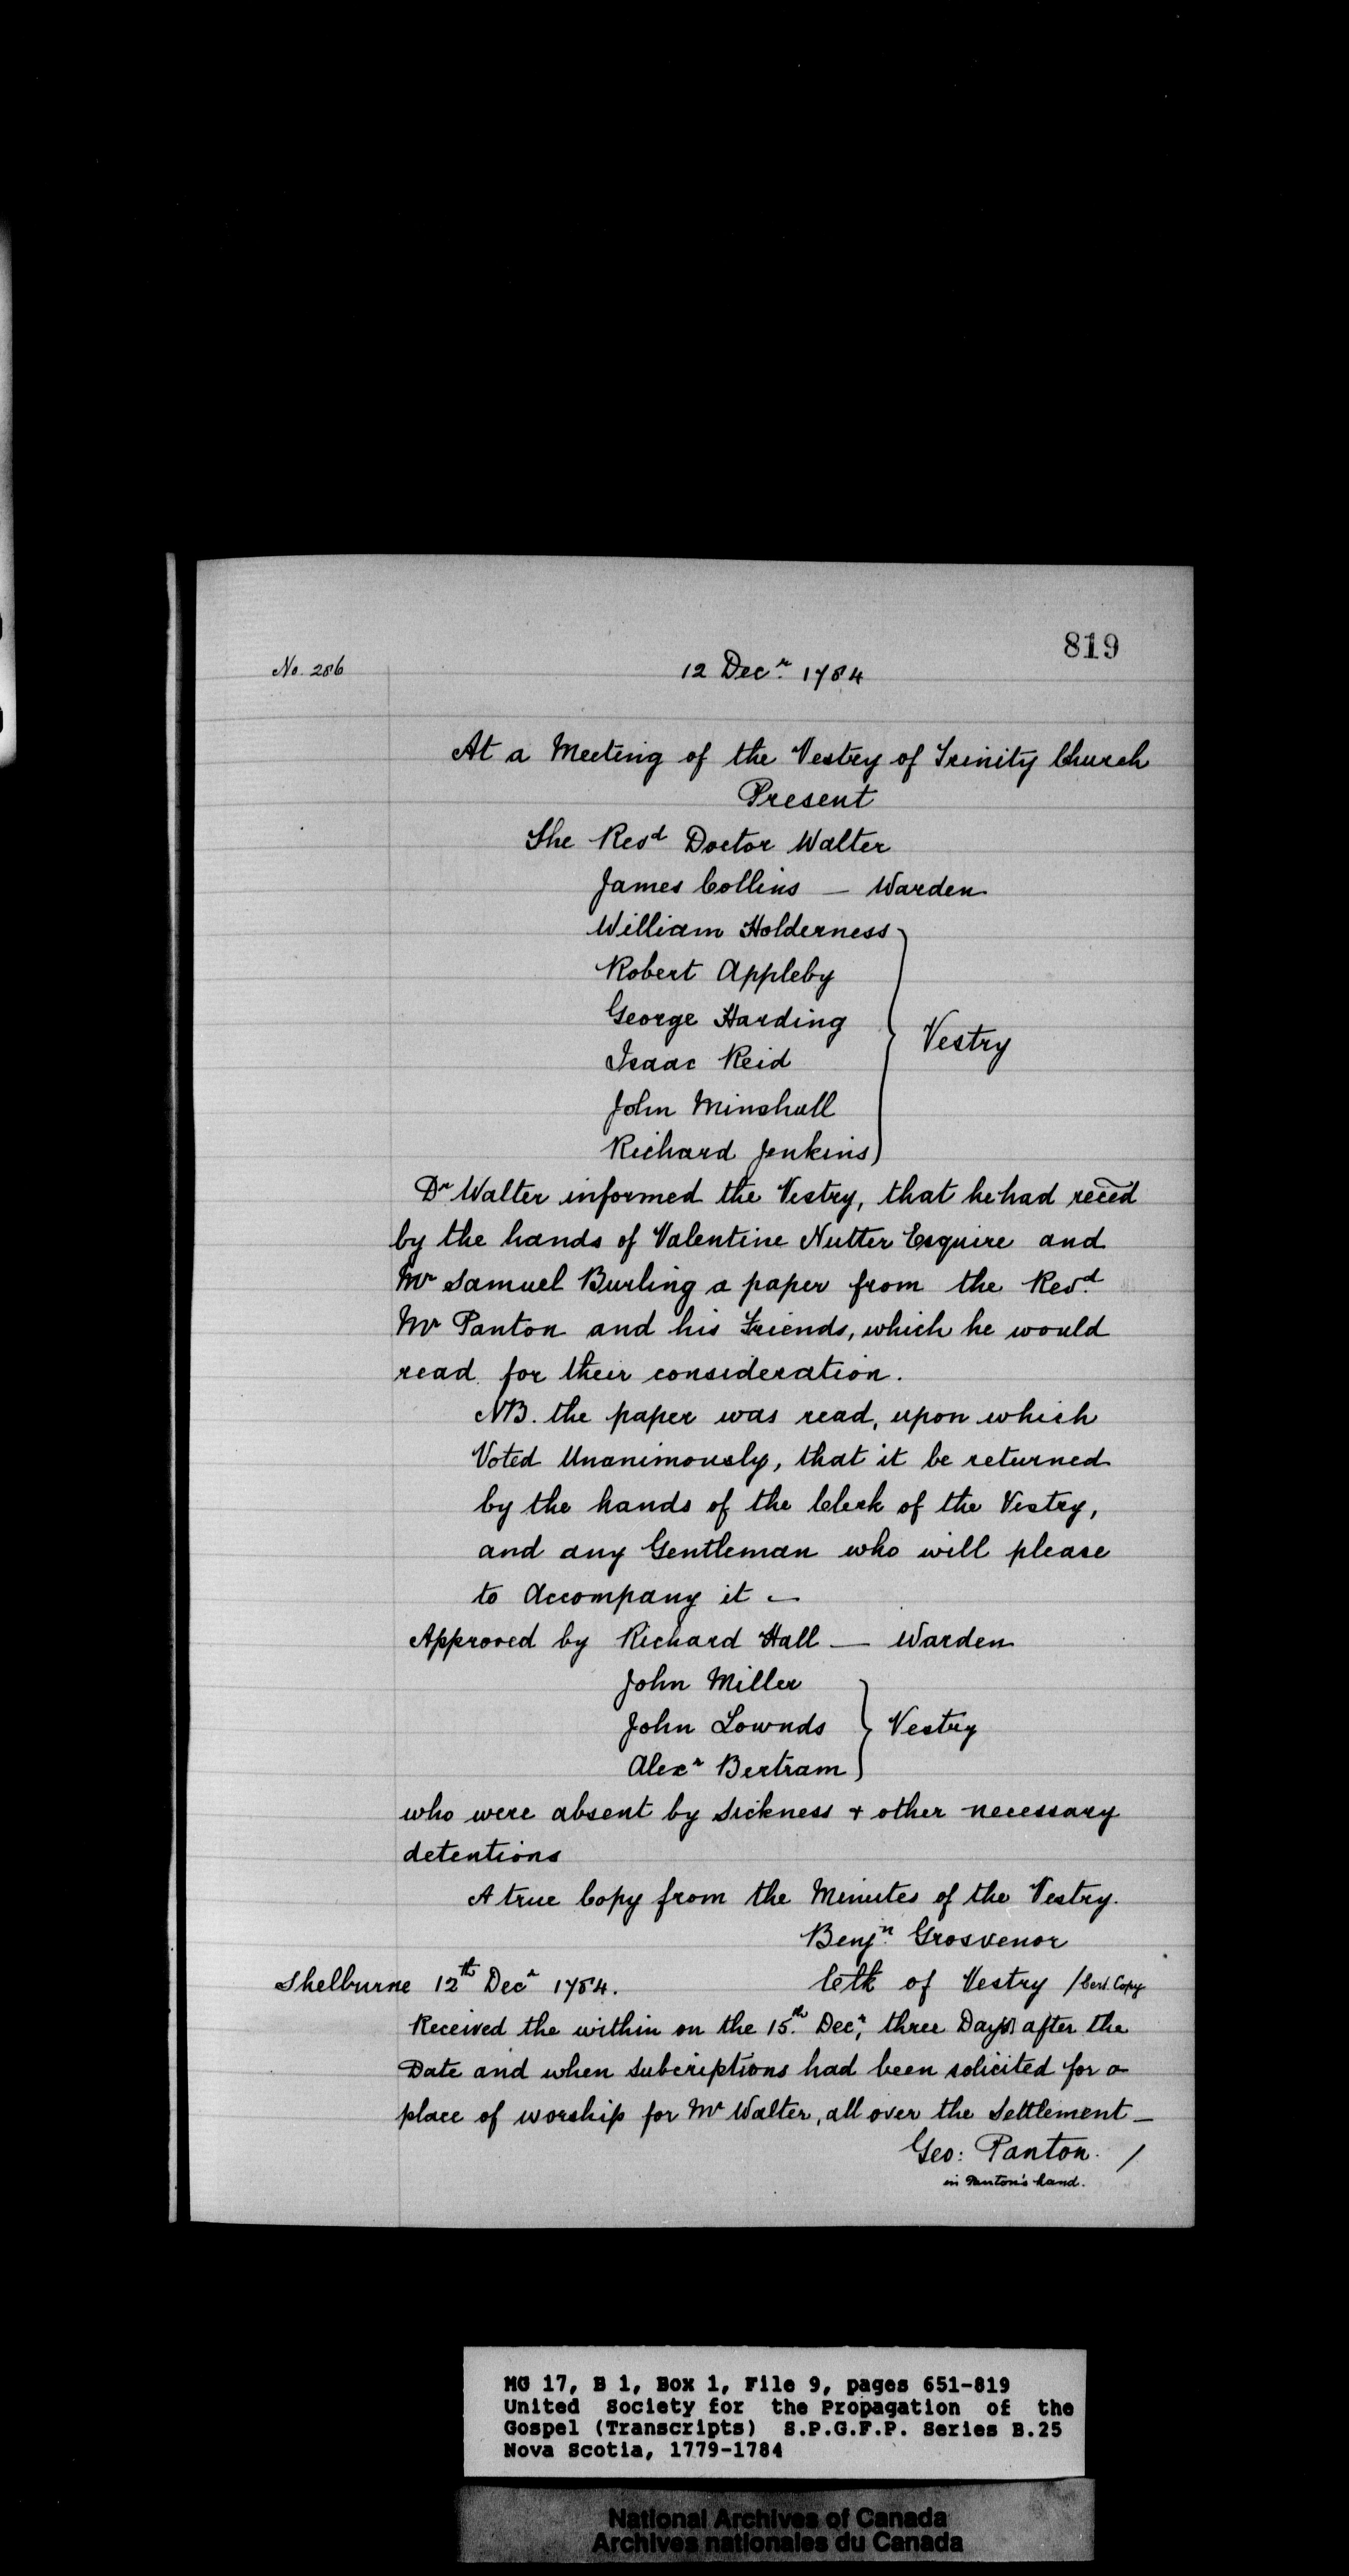 819
No. 286
12 Decr. 1784
At a Meeting of the Vestry of Trinity Church
Present
The Revd Doctor Walter
James Collins — Warden
William Holderness
Robert Appleby
George Harding
Isaac Reid
John Minshull
Richard Jenkins
Vestry
Dr Walter informed the Vestry, that he had reced
by the hands of Valentine Nutter Esquire and
Mr Samuel Burling a paper from the Revd.
Mr Panton and his Friends, which he would
read for their consideration.
NB. the paper was read, upon which
Voted Unanimously, that it be returned
by the hands of the Clerk of the Vestry,
and any Gentleman who will please
to accompany it —
Approved by Richard Hall — Warden
John Miller
John Lownds
Alexr Bertram
Vestry
who were absent by Sickness + other necessary
detentions
A true Copy from the Minutes of the Vestry.
Benjn. Grosvenor
Shelburne 12th Decr 1784. Clk of Vestry / Cert. Copy
Received the within on the 15th. Decr, three Days after the
Date and when subcriptions had been solicited for a
place of worship for Mr Walter, all over the Settlement —
Geo: Panton. /
in Panton's hand.
MG 17, B 1, Box 1, File 9, pages 651-819
United Society for the Propagation of the
Gospel (Transcripts) S.P.G.F.P. Series B.25
Nova Scotia, 1779-1784
National Archives of Canada
Archives nationales du Canada